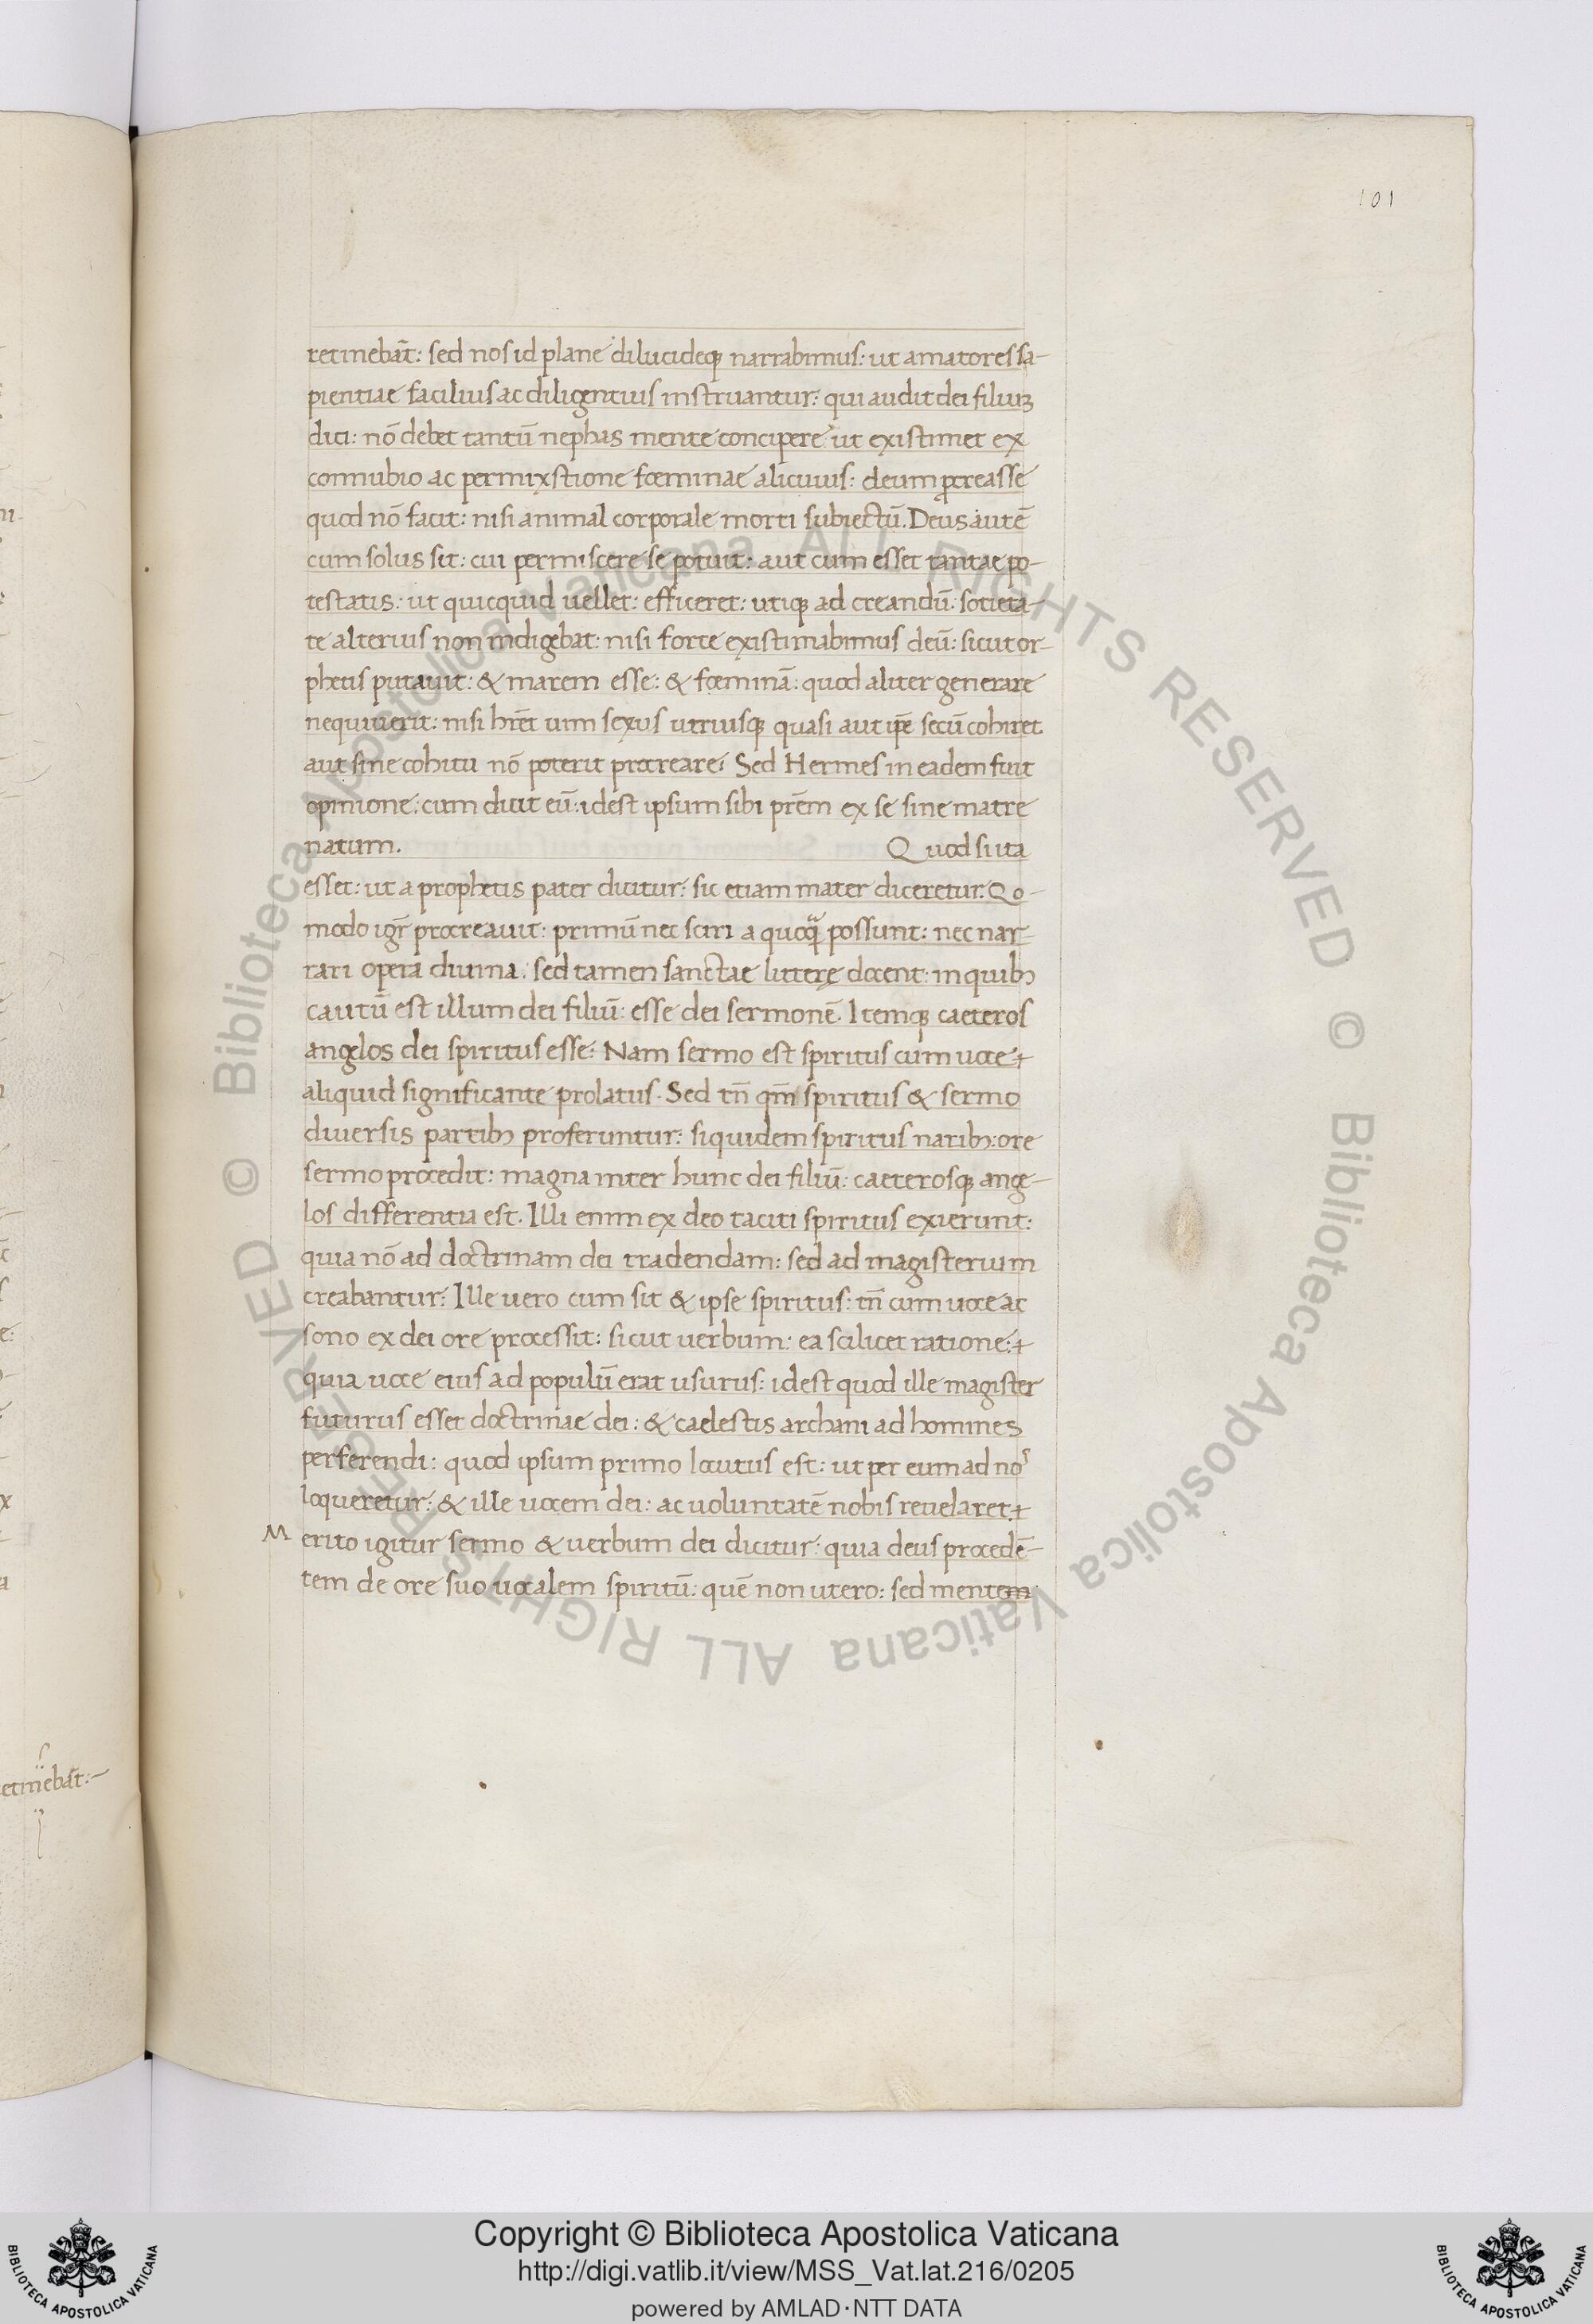 101
retinebāt: sed nos id plane dilucideq; narrabimus: ut amatores sa-
pientiae facilius ac diligentius instruantur: qui audit dei filiuꝫ
dici: nō debet tantū nephas mente concipere ut existimet ex
connubio ac permixstione foeminae alicuius: deum ꝓcreasse
quod nō facit: nisi animal corporale morti subiectū. Deus autē
cum solus sit: cui permiscere se potuit: aut cum esset tantae po-
testatis: ut quicquid uellet: efficeret: utiq; ad creandū: societa-
te alterius non indigebat: nisi forte existimabimus deū: sicut or-
phetis putauit: & marem esse: & foeminā: quod aliter generare
nequiuerit: nisi hrēt uim sexus utriusq; quasi aut ip̄e secū cohiret
aut sine cohitu nō poterit procreare: Sed Hermes in eadem fuit
opinione: cum dicit eū: idest ipsum sibi prēm ex se sine matre
natum. Quod si ita
esset: ut a prophetis pater dicitur: sic etiam mater diceretur. Qo-
modo igr̄ procreauit: primū nec sciri a quoq̄ possunt: nec nar-
rari opera diuina: sed tamen sanctae litterę docent: in quibꝫ
cautū est illum dei filiū: esse dei sermonē. Itemq; caeteros
angelos dei spiritus esse: Nam sermo est spiritus cum uoce+
aliquid significante prolatus. Sed tn̄ qm̄ spiritus & sermo
diuersis partibꝫ proferuntur: siquidem spiritus naribꝫ: ore
sermo procedit: magna inter hunc dei filiū: caeterosq; ange-
los differentia est. Illi enim ex deo taciti spiritus exierunt:
quia nō ad doctrinam dei tradendam: sed ad magisterium
creabantur: Ille uero cum sit & ipse spiritus: tn̄ cum uoce ac
sono ex dei ore processit: sicut uerbum: ea scilicet ratione:+
quia uoce eius ad populū erat usurus: idest quod ille magister
futurus esset doctrinae dei: & caelestis archani ad homines
perferendi: quod ipsum primo locutus est: ut per eum ad nos
loqueretur: & ille uocem dei: ac uoluntatē nobis reuelaret+
Merito igitur sermo & uerbum dei dicitur: quia deus procedē-
tem de ore suo uocalem spiritū: quē non utero: sed mentem
etinebāt:-
© Biblioteca Apostolica Vaticana ALL RIGHTS RESERVED
© Biblioteca Apostolica Vaticana ALL RIGHTS RESERVED
Copyright © Biblioteca Apostolica Vaticana
http://digi.vatlib.it/view/MSS_Vat.lat.216/0205
powered by AMLAD·NTT DATA
BIBLIOTECA APOSTOLICA VATICANA
BIBLIOTECA APOSTOLICA VATICANA